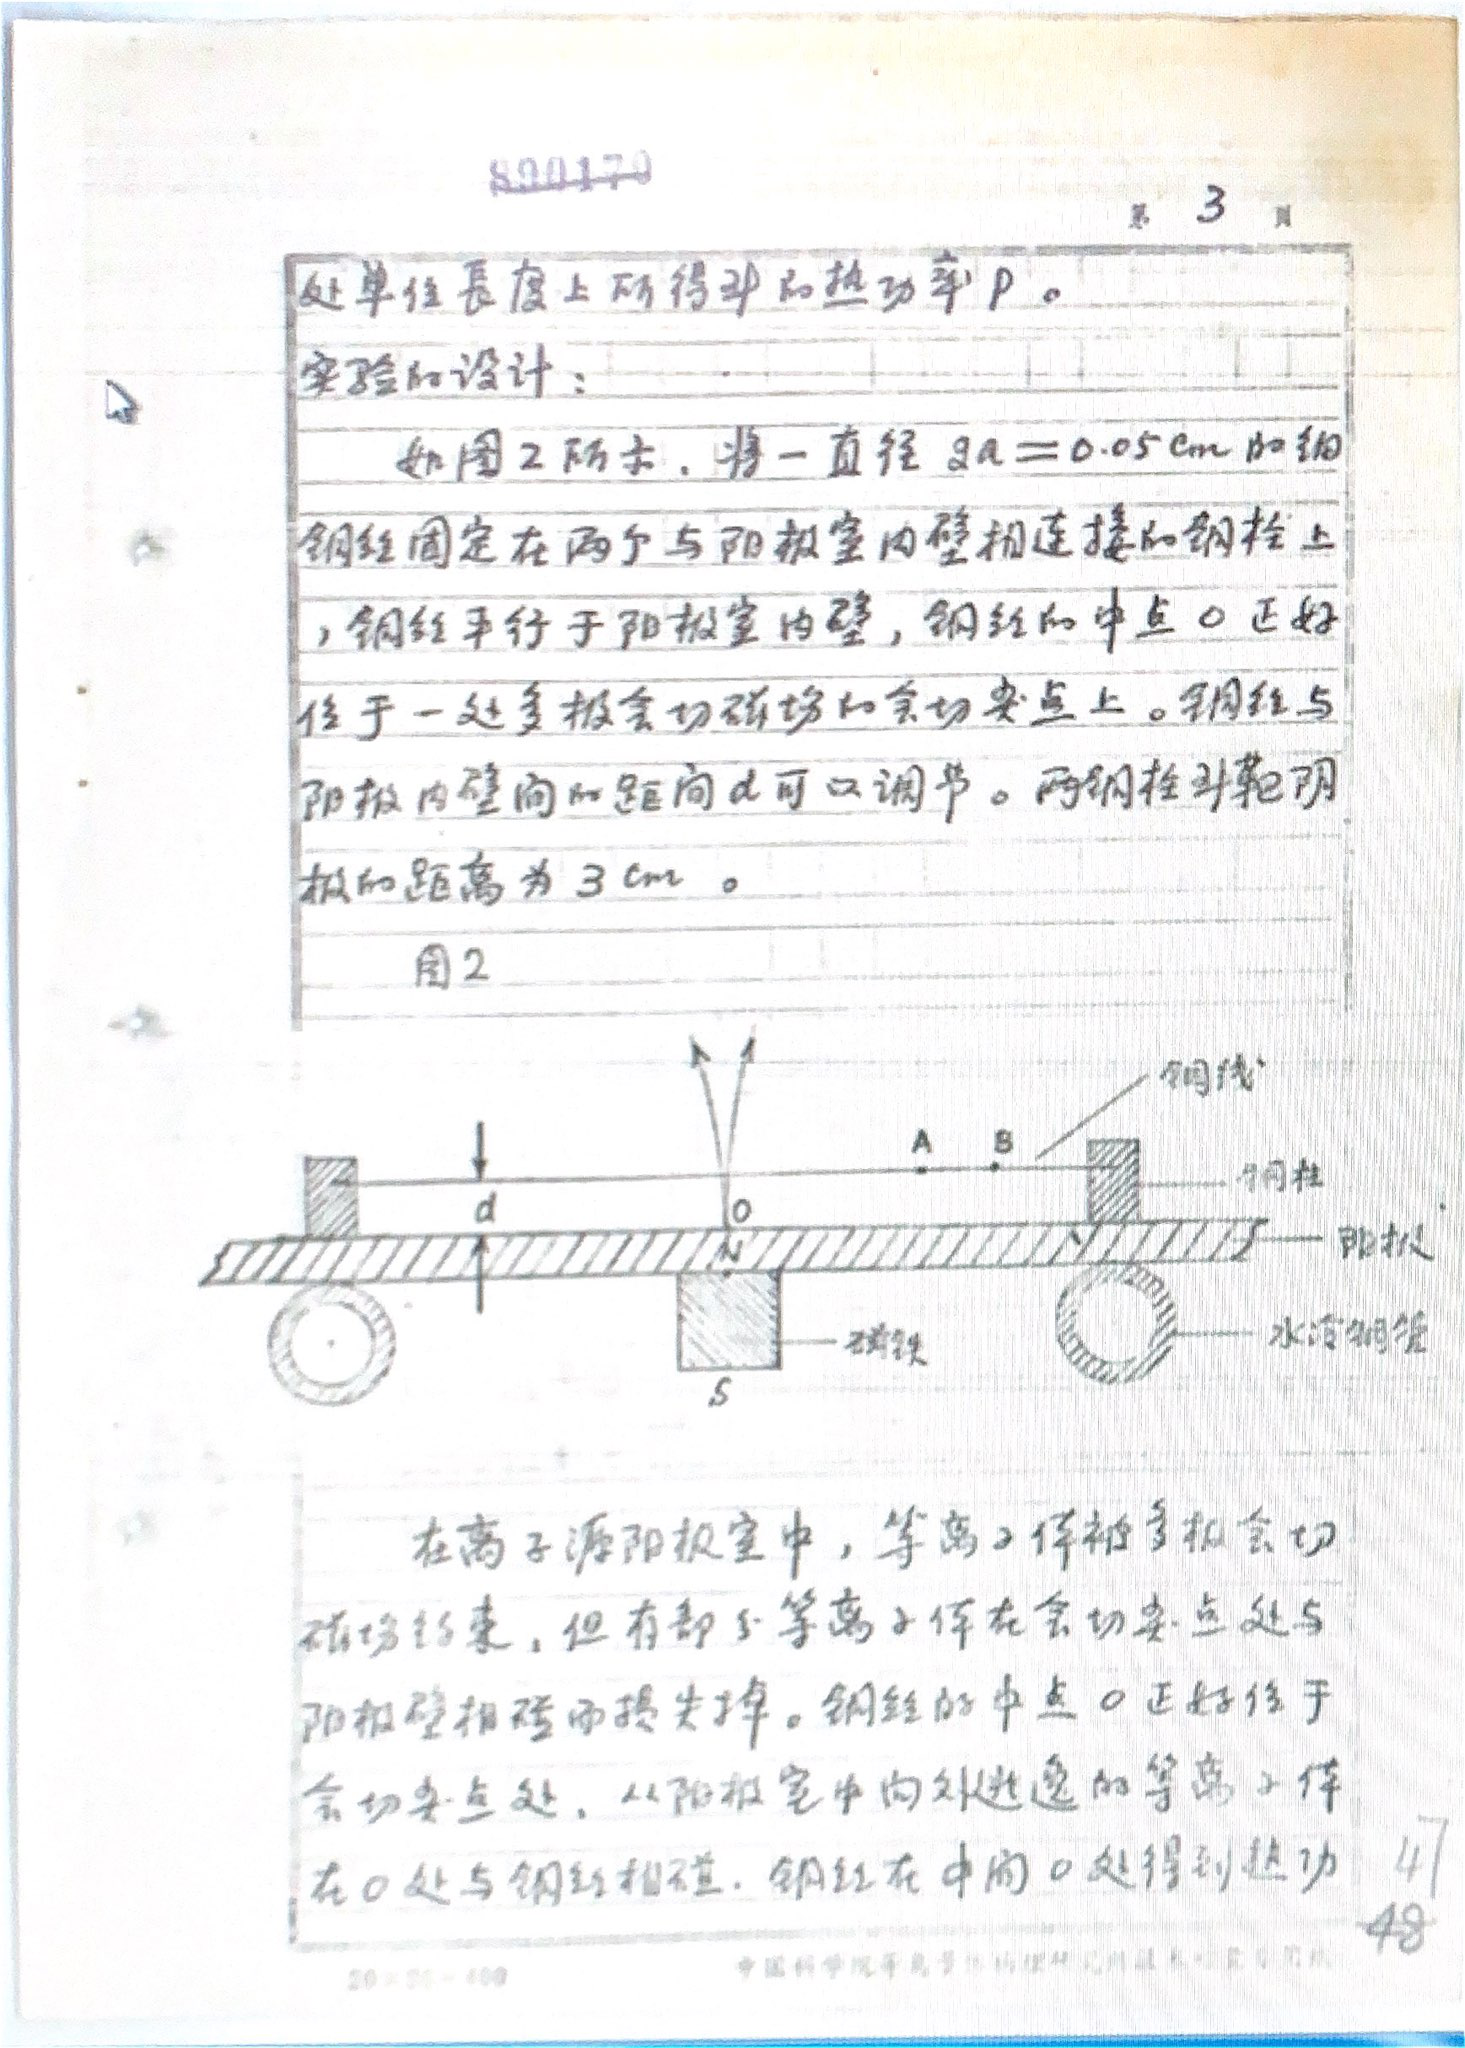 890170
第 3 页
处单位長度上所得到的热功率P。
实验的设计:
如图2所示,将一直径 2a=0.05cm的细
铜丝固定在两个与阳极室内壁相连接的铜栓上
,铜丝平行于阳极室内壁,铜丝的中点O正好
位于一处多极会切磁场的会切尖点上。铜丝与
阳极内壁间的距间d可以调节。两铜栓到靶阴
极的距离为3cm。
图2
铜线
A B
铜柱
d
O
N
阳极
磁铁
水冷铜管
S
在离子源阳极室中,等离子体被多极会切
磁场约束,但有部分等离子体在会切尖点处与
阳极壁相碰而损失掉。铜丝的中点O正好位于
会切尖点处,从阳极室中向外逃逸的等离子体
在O处与铜丝相碰.铜丝在中间O处得到热功
47
48
20×20=400